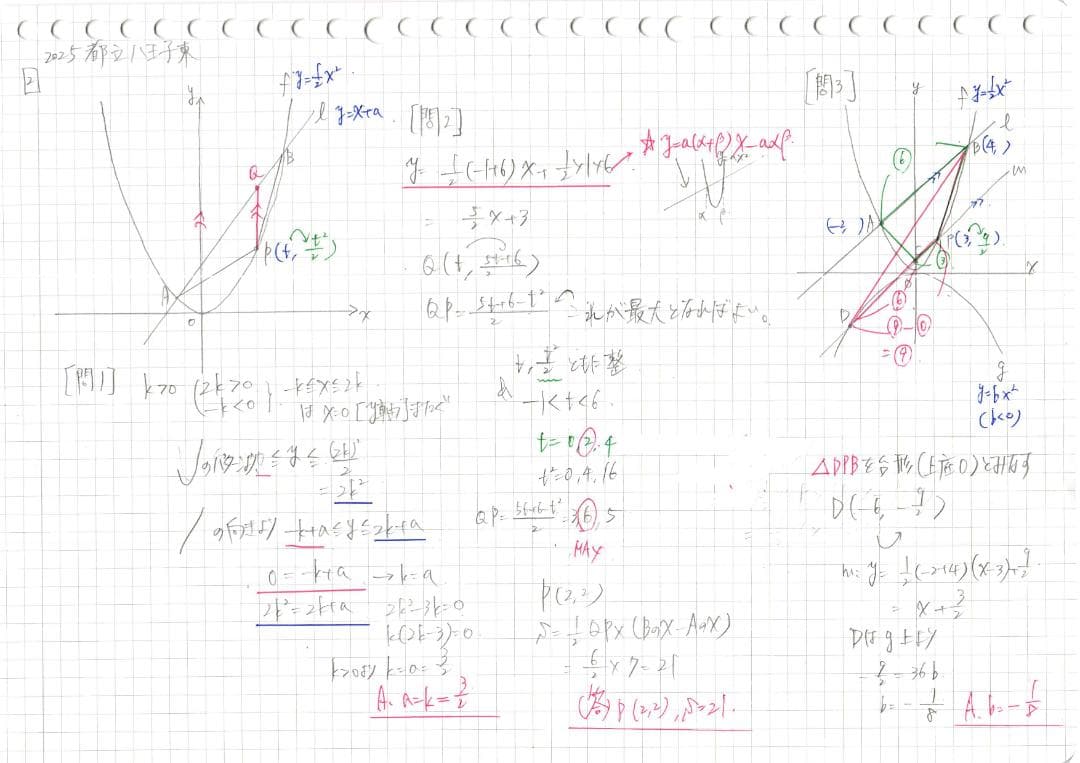 2025 都立八王子東
2
y
f y=1/2x²
l y=x+a
B
Q
P(t, t²/2)
A
O
x
[問1] k>0 (2k>0
-k<0) -k≦x≦2k
は x=0 [y軸]またぐ
の値域 0≦y≦(2k)²/2
=2k²
の向きより -k+a≦y≦2k+a
0=-k+a →k=a
2k²=2k+a 2k²-3k=0
k(2k-3)=0
k>0より k=a=3/2
A. a=k=3/2
[問2]
y=1/2(-1+6)x+1/2×1×6
☆ y=a(α+β)x-aαβ
y=ax²
α β
=5/2x+3
Q(t, (5t+6)/2)
QP=(5t+6-t²)/2 これが最大となればよい。
t, t²/2 ともに整
-1<t<6
t=0,2,4
t²=0,4,16
QP=(5t+6-t²)/2=3,6,5
MAX
P(2,2)
S=1/2QP×(BのX-AのX)
=6/2×7=21
(答) P(2,2), S=21.
[問3]
y
f y=1/2x²
l
B(4, )
m
⑥
(-2, ) A
P(3, 9/2)
③
x
O
D
⑥
=⑨
g
y=bx²
(b<0)
△DPBを台形(上底0)とみなす
D(-6, -9/2)
m: y=1/2(-2+4)(x-3)+9/2
=x+3/2
Dはg上より
-9/2=36b
b=-1/8
A. b=-1/8